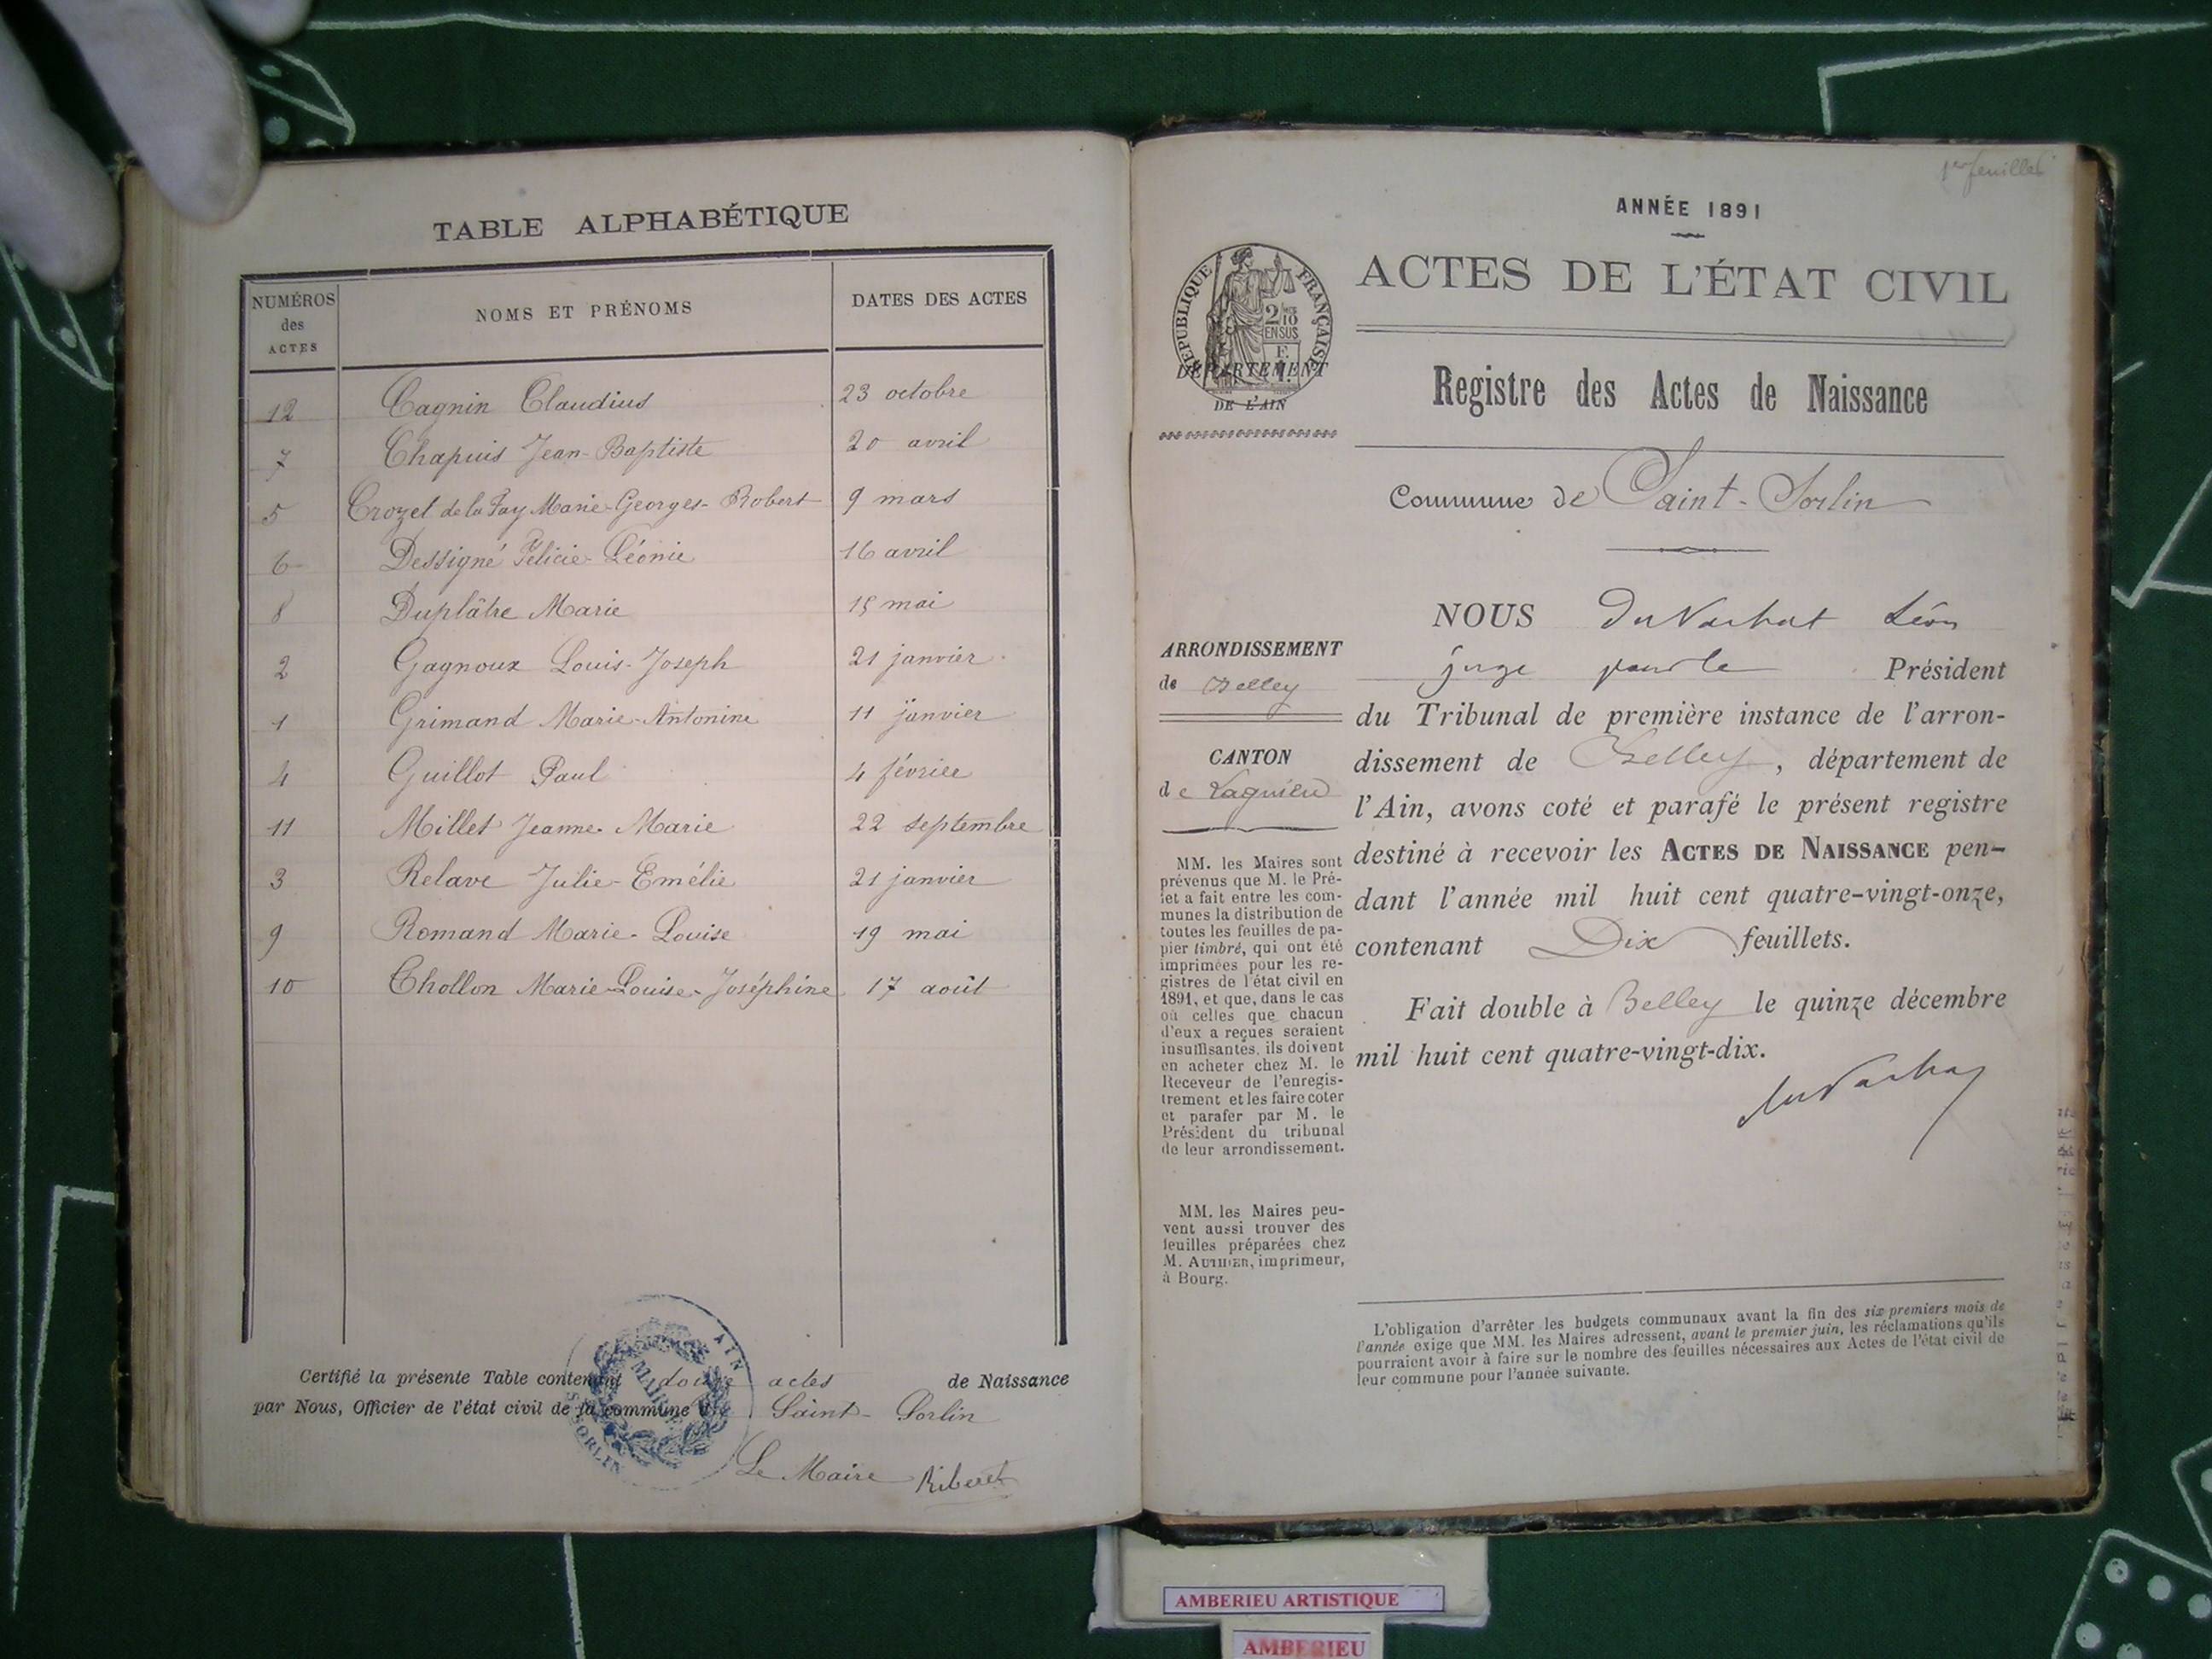 TABLE ALPHABÉTIQUE
NUMÉROS des ACTES
NOMS ET PRÉNOMS
DATES DES ACTES
12 Cagnin Claudius 23 octobre
7 Chapuis Jean-Baptiste 20 avril
5 Crozet de la Fay Marie-Georges-Robert 9 mars
6 Dessigné Félicie-Léonie 16 avril
8 Duplâtre Marie 15 mai
2 Gagnoux Louis-Joseph 21 janvier
1 Grimand Marie-Antonine 11 janvier
4 Guillot Paul 4 février
11 Millet Jeanne-Marie 22 septembre
3 Relave Julie-Emélie 21 janvier
9 Romand Marie-Louise 19 mai
10 Thollon Marie-Louise-Joséphine 17 août
Certifié la présente Table contenant douze actes de Naissance
par Nous, Officier de l'état civil de la commune de Saint-Sorlin
Le Maire Riberet
MAIRIE
AIN
SORLIN
1er feuillet
ANNÉE 1891
ACTES DE L'ÉTAT CIVIL
RÉPUBLIQUE FRANÇAISE
2/10
EN SUS
DÉPARTEMENT
DE L'AIN
Registre des Actes de Naissance
Commune de Saint-Sorlin
ARRONDISSEMENT
de Belley
CANTON
de Lagnieu
MM. les Maires sont
prévenus que M. le Pré-
fet a fait entre les com-
munes la distribution de
toutes les feuilles de pa-
pier timbré, qui ont été
imprimées pour les re-
gistres de l'état civil en
1891, et que, dans le cas
où celles que chacun
d'eux a reçues seraient
insuffisantes, ils doivent
en acheter chez M. le
Receveur de l'enregis-
trement et les faire coter
et parafer par M. le
Président du tribunal
de leur arrondissement.
MM. les Maires peu-
vent aussi trouver des
feuilles préparées chez
M. AUTHIER, imprimeur,
à Bourg.
NOUS Léon
juge pour le Président
du Tribunal de première instance de l'arron-
dissement de Belley, département de
l'Ain, avons coté et parafé le présent registre
destiné à recevoir les ACTES DE NAISSANCE pen-
dant l'année mil huit cent quatre-vingt-onze,
contenant Dix feuillets.
Fait double à Belley le quinze décembre
mil huit cent quatre-vingt-dix.
L'obligation d'arrêter les budgets communaux avant la fin des six premiers mois de
l'année exige que MM. les Maires adressent, avant le premier juin, les réclamations qu'ils
pourraient avoir à faire sur le nombre des feuilles nécessaires aux Actes de l'état civil de
leur commune pour l'année suivante.
AMBERIEU ARTISTIQUE
AMBERIEU